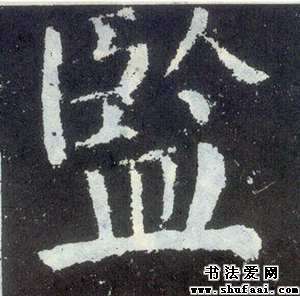 監
书法爱网
www.shufaai.com